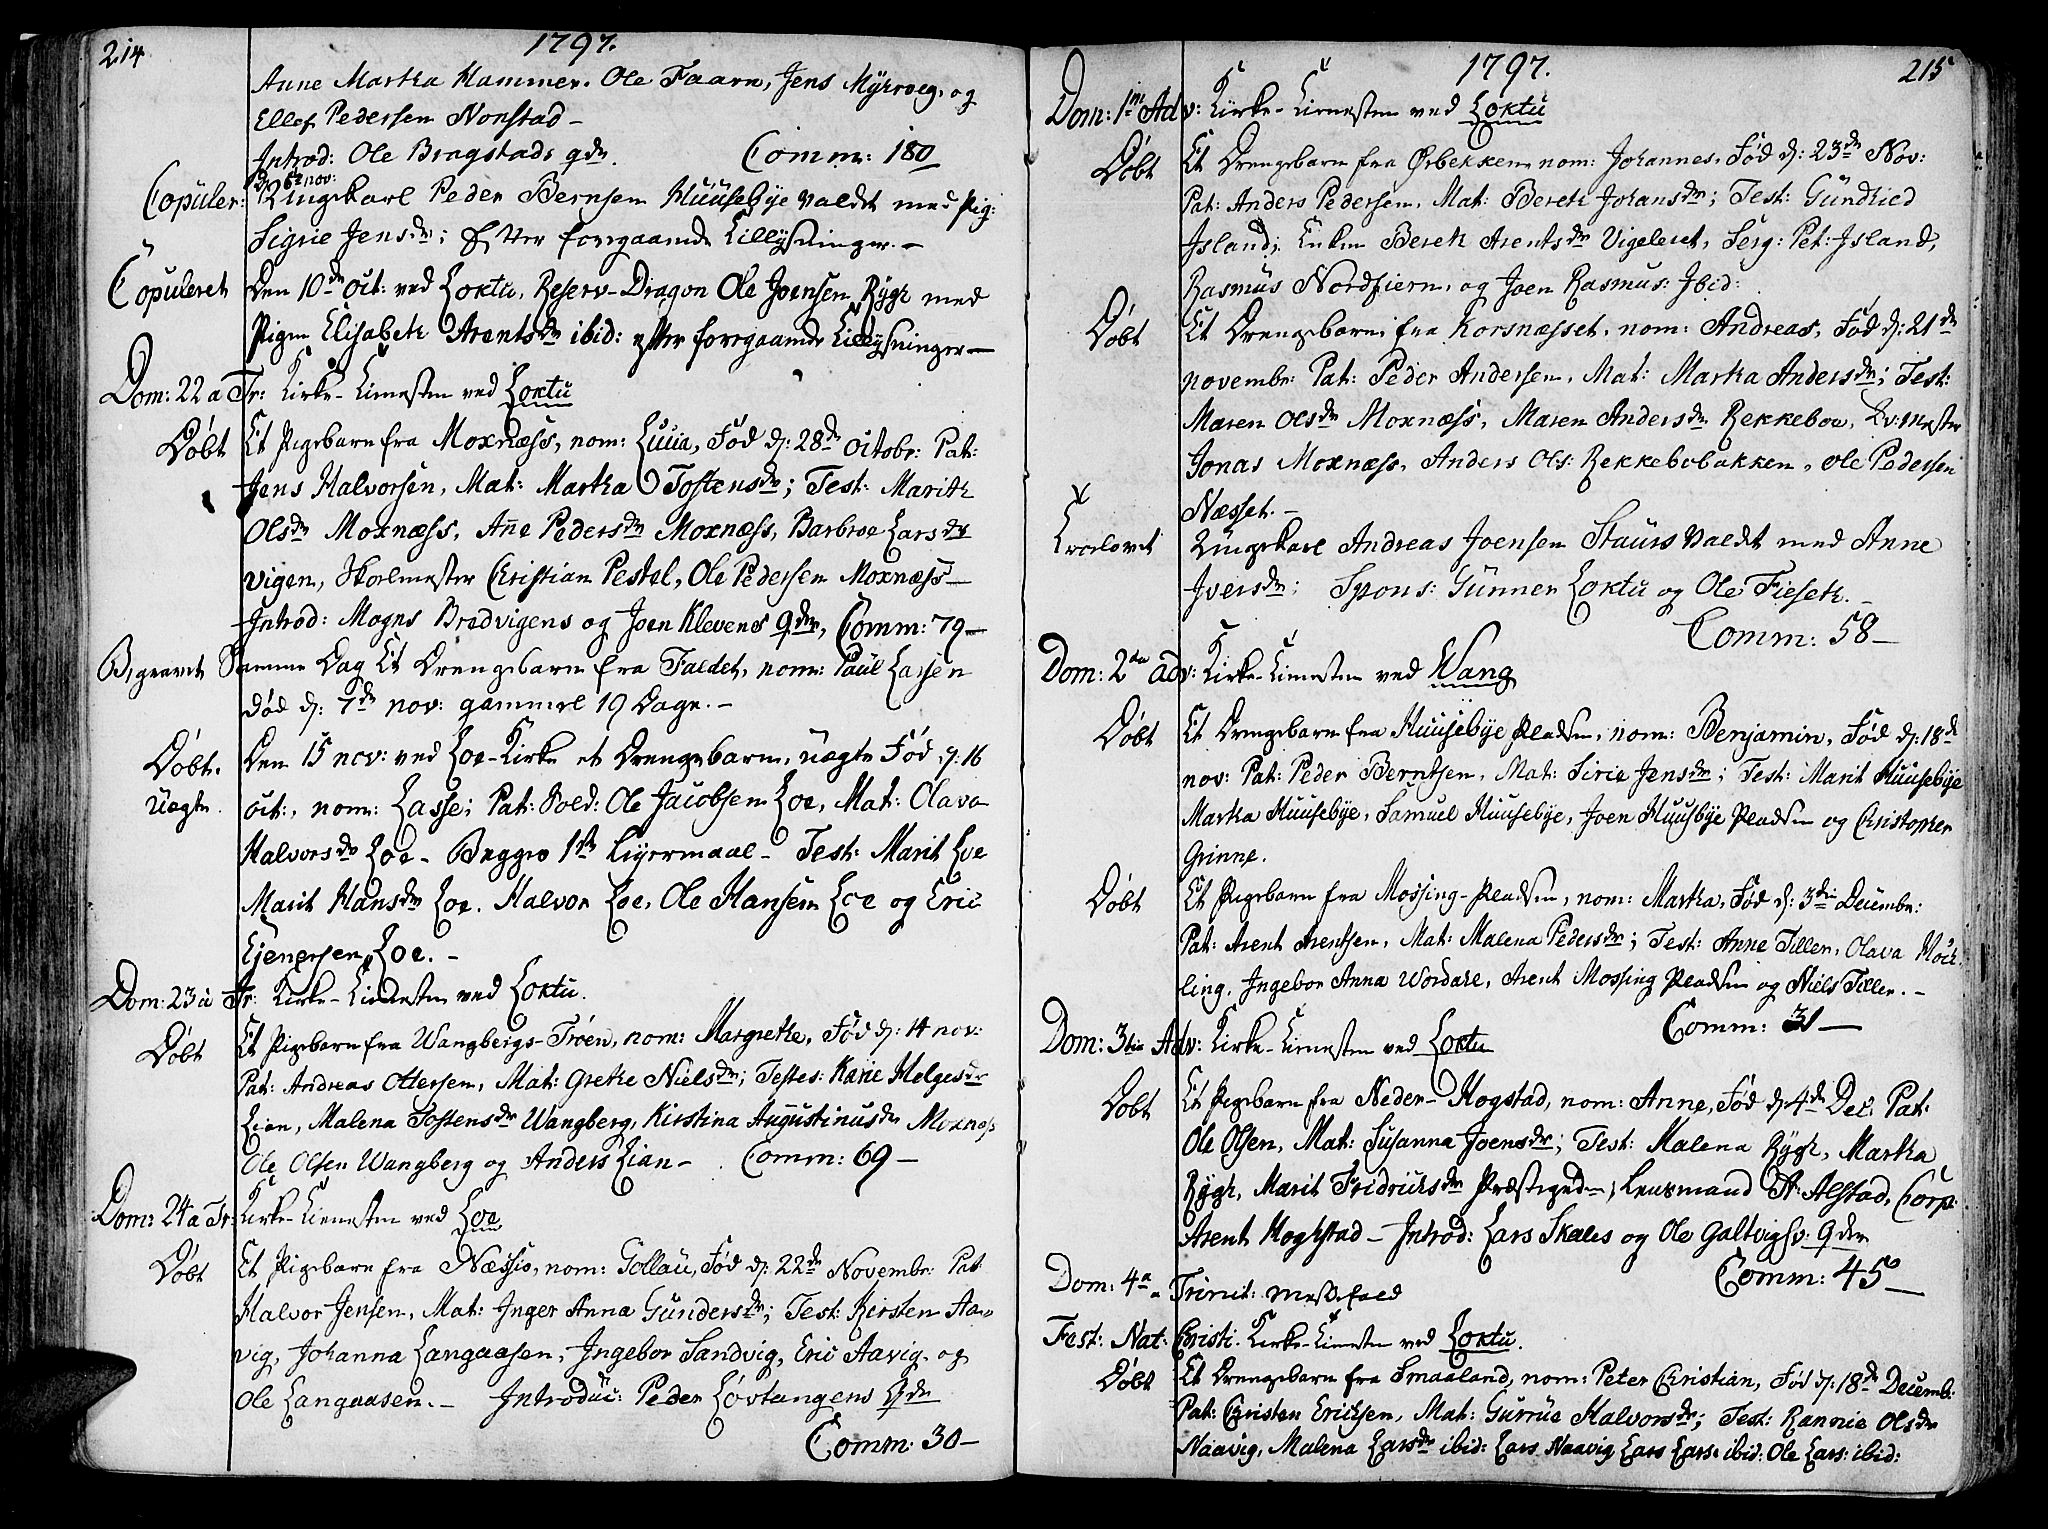 214
1797.
Anne Martha Hammer. Ole Faarn, Jens Myhrveg, og
Ellef Pedersen Nonstad –
Introd: Ole Bragstads qde. Comm: 180
d 6te nov:
Copuler: Ungekarl Peder Bernsen Huusebye valdt med Pig:
Sigrie Jensdr; Efter foregaaende Lillysninger. –
Copuleret Den 10de oct: ved Loktu, Reserv-Dragon Ole Joensen Rygh med
Pigen Elisabeth Arentsdr ibid: efter foregaaende Lillysninger –
Dom: 22 a Tr: Kirke-Tienesten ved Loktu
Døbt Et Pigebarn fra Moxnæss, nom: Lucia, Fød d: 28de octobr: Pat:
Jens Halvorsen, Mat: Martha Tostensdr; Test: Marith
Olsdr Moxnæss, Anne Pedersdr Moxnæss, Barbroe Larsdr
vigen, Skolemester Christian Pestel, Ole Pedersen Moxnæss –
Introd: Mogns Bredvigens og Joen Klevens qder, Comm: 79 –
Begravet Samme Dag Et Drengebarn fra Faldet, nom: Paul Larsen
død d: 7de nov: gammel 19 Dage. –
Døbt. Den 15 nov: ved Loe-Kirke et Drengebarn, uægte Fød d: 16
uægte. oct:, nom: Lasse; Pat: Sold: Ole Jacobsen Loe, Mat: Olava
Halvorsdr Loe – Begges 1ste Leyermaal – Test: Marit Loe
Marit Hansdr Loe. Halvor Loe, Ole Hansen Loe og Eric
Ejenersen Loe. –
Dom: 23 a Tr: Kirke-Tienesten ved Loktu.
Døbt Et Pigebarn fra Wangbergs-Trøen, nom: Margrethe, Fød d: 14 nov:
Pat: Andreas Ottersen, Mat: Grethe Nielsdr; Testes: Karie Helgesdr
Lian, Malena Tostensdr Wangberg, Kirstina Augustinusdr Moxnæss
Ole Olsen Wangberg og Anders Lian – Comm: 69 –
Dom: 24 a Tr: Kirke-Tienesten ved Loe
Døbt Et Pigebarn fra Næssis, nom: Gollau, Fød d: 22de Novembr: Pat:
Halvor Jensen, Mat: Inger Anna Gundersdr; Test: Kirsten Aa-
vig, Johanna Langaasen, Ingebor Sandvig, Eric Aavig, og
Ole Langaasen. – Introduc: Peder Løvtangens qde
Comm: 30 –
1797.
215
Dom: 1mi Adv: Kirke-Tienesten ved Loktu
Døbt Et Drengebarn fra Ørbekken, nom: Johannes, Fød d: 23de Nov:
Pat: Anders Pedersen, Mat: Bereth Johansdr; Test: Gundhied
Island, Enken Bereth Arentsdr Vigeleret, Serg: Pet: Island,
Rasmus Nordfiern, og Joen Rasmus: Ibid:
Døbt Et Drengebarn fra Korsnæsset, nom: Andreas, Fød d: 21de
novembr: Pat: Peder Andersen, Mat: Martha Andersdr; Test:
Maren Olsdr Moxnæss, Maren Andersdr Rekkeboe, Qv:mester
Jonas Moxnæss, Anders Ols: Rekkebobakken, Ole Pedersen
Næsset. –
Trolovet Ungekarl Andreas Joensen Staurs valdt med Anne
Iversdr; Spons: Gunner Loktu og Ole Fieseth. –
Comm: 58 –
Dom: 2da adv: Kirke-Tienesten ved Wang
Døbt Et Drengebarn fra Huusebye Pladsen, nom: Benjamin, Fød d: 18de
nov: Pat: Peder Berntsen, Mat: Sirie Jensdr; Test: Marit Huusebye
Martha Huusebye, Samuel Huusebye, Joen Huusbye Pladsen og Christopher
Grinne.
Døbt Et Pigebarn fra Mossing-Pladsen, nom: Martha, Fød d: 3die Decembr:
Pat: Arent Arentsen, Mat: Malena Pedersdr; Test: Anne Tiller, Olava Møck
ling, Ingebor Anna Wordahl, Arent Mossing Pladsen og Niels Tiller. –
Comm: 31 –
Dom: 3tia Adv: Kirke-Tienesten ved Loktu
Døbt Et Pigebarn fra Neder-Hogstad, nom: Anne, Fød d: 4de Dec: Pat:
Ole Olsen, Mat: Susanna Joensdr; Test: Malena Rygh, Martha
Rygh, Marit Fridrichsdr Præstegrd –, Lensmand Pt: Alstad, Corp:
Arent Hoghstad – Introd: Lars Skales og Ole Galtvigsv: qder
Comm: 45 –
Dom: 4a a Trinit: Messefald
Fest: Nat: Christi. Kirke-Tienesten ved Loktu.
Døbt Et Drengebarn fra Smaaland, nom: Peter Christian, Fød d: 18de Decemb:
Pat: Christen Ericksen, Mat: Gurrue Halvorsdr; Test: Rannie Olsdr
Naavig, Malena Larsdr ibid: Lars Naavig Lars Lars: ibid: Ole Lars: ibid: